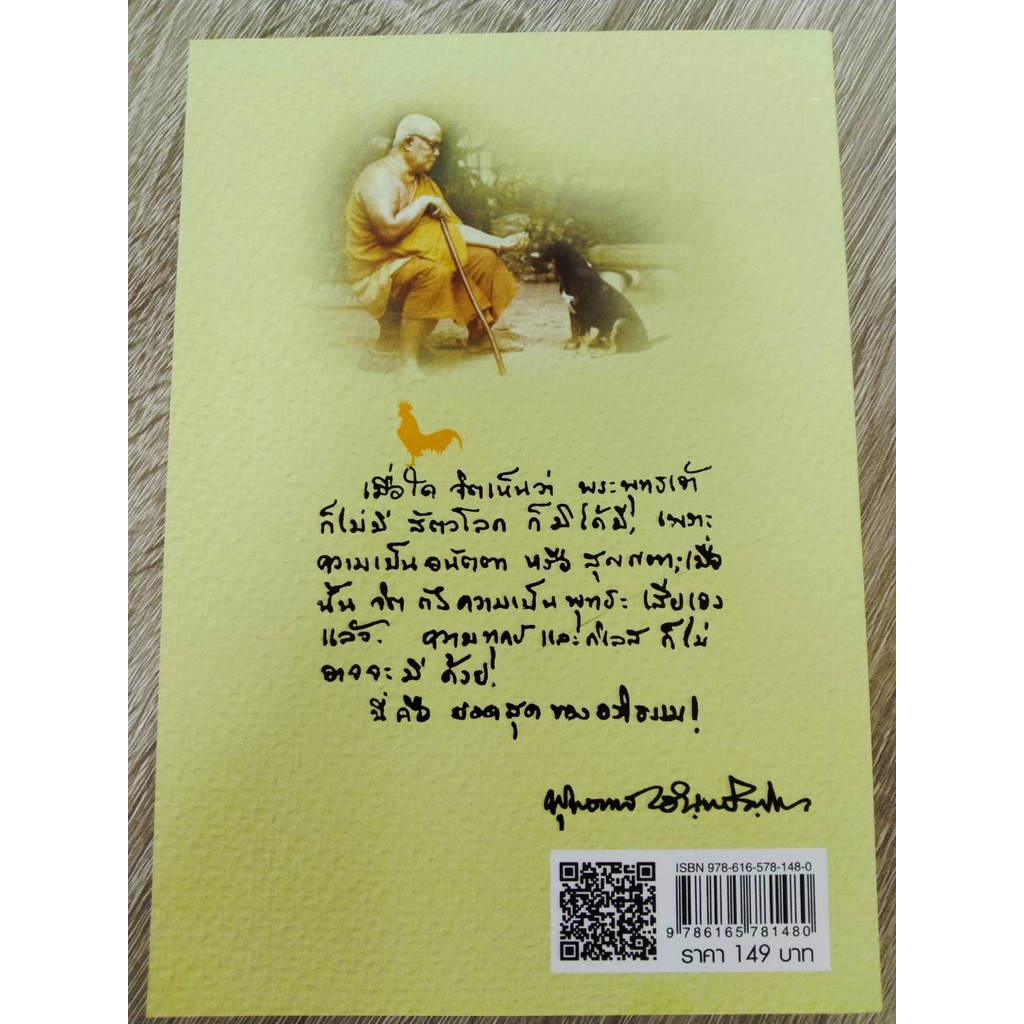 เมื่อใด จิตเห็นว่า พระพุทธเจ้า
ก็ไม่มี สัตว์โลก ก็มิได้มี, เพราะ
ความเป็นอนัตตา หรือ สุญญตา; เมื่อ
นั้น จิต ถึงความเป็นพุทธะ เสียเอง
แล้ว. ความทุกข์ และกิเลส ก็ไม่
อาจจะมี ด้วย!
นี่คือ ยอดสุด ของอภิธรรม!
พุทธทาส อินทปัญโญ
ISBN 978-616-578-148-0
9 786165 781480
ราคา 149 บาท